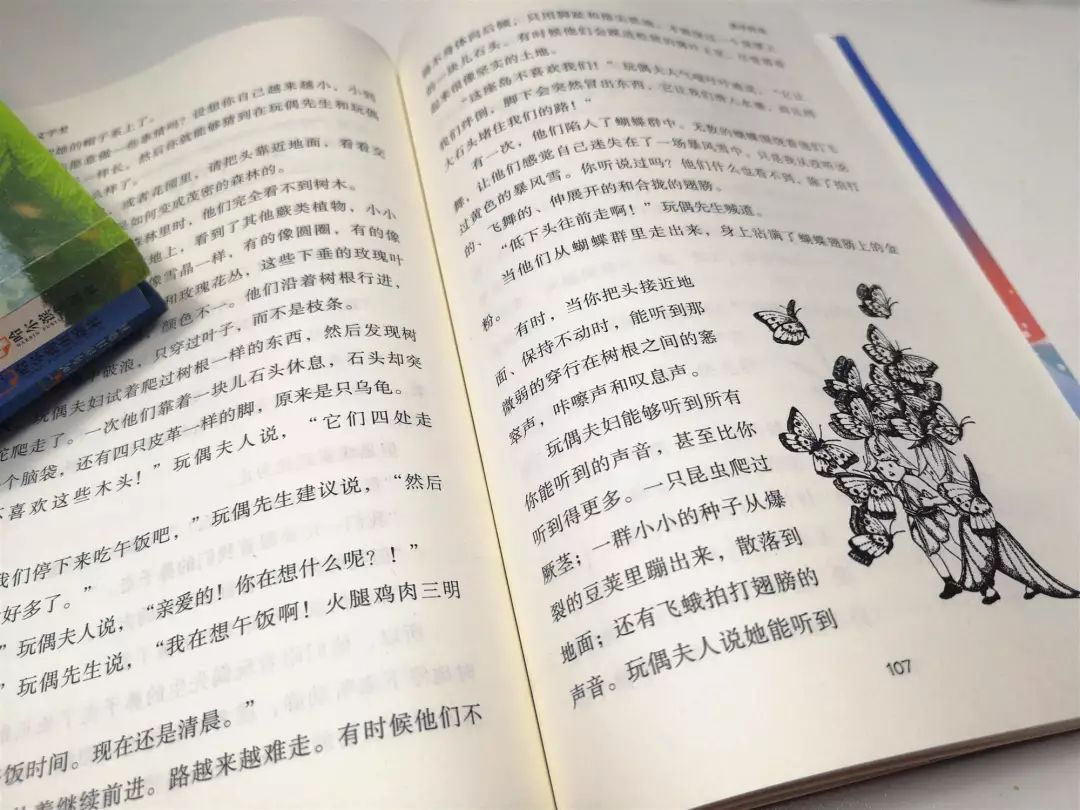 越来越小，小到
她的帽子系上了。设想你自己
愿意做一些事情吗？
一样长，然后你就能够猜到在玩偶先生和玩偶
么样了。
或者花园里，请把头靠近地面，看看交
是如何变成茂密的森林的。
森林里时，他们完全看不到树木。
地上，看到了其他蕨类植物，小小
像雪晶一样，有的像圆圈，有的像
和玫瑰花丛，这些下垂的玫瑰叶
颜色不一。他们沿着树根行进，
破浪，只穿过叶子，而不是枝条。
玩偶夫妇试着爬过树根一样的东西，然后发现树
蛇爬走了。一次他们靠着一块儿石头休息，石头却突
个脑袋，还有四只皮革一样的脚，原来是只乌龟。
喜欢这些木头！”玩偶夫人说，“它们四处走
我们停下来吃午饭吧，”玩偶先生建议说，“然后
好多了。”
”玩偶夫人说，“亲爱的！你在想什么呢？！”
”玩偶先生说，“我在想午饭啊！火腿鸡肉三明
饭时间。现在还是清晨。”
着继续前进。路越来越难走。有时候他们不
一块儿石头。有时候他们会
起来很像坚实的土地。
“这座岛不喜欢我们！”玩偶夫人气
我们绊倒，脚下会突然冒出东西，它让我们
大石头堵住我们的路！”
有一次，他们陷入了蝴蝶群中。无数的蝴蝶围绕着他们飞
舞，让他们感觉自己迷失在了一场暴风雪中，只是我从没听说
过黄色的暴风雪。你听说过吗？他们什么也看不到，除了拍打
的、飞舞的、伸展开的和合拢的翅膀。
“低下头往前走啊！”玩偶先生喊道。
当他们从蝴蝶群里走出来，身上沾满了蝴蝶翅膀上的金
粉。
有时，当你把头接近地
面、保持不动时，能听到那
微弱的穿行在树根之间的窸
窣声，咔嚓声和叹息声。
玩偶夫妇能够听到所有
你能听到的声音，甚至比你
听到得更多。一只昆虫爬过
蕨茎；一群小小的种子从爆
裂的豆荚里蹦出来，散落到
地面；还有飞蛾拍打翅膀的
声音。玩偶夫人说她能听到
107